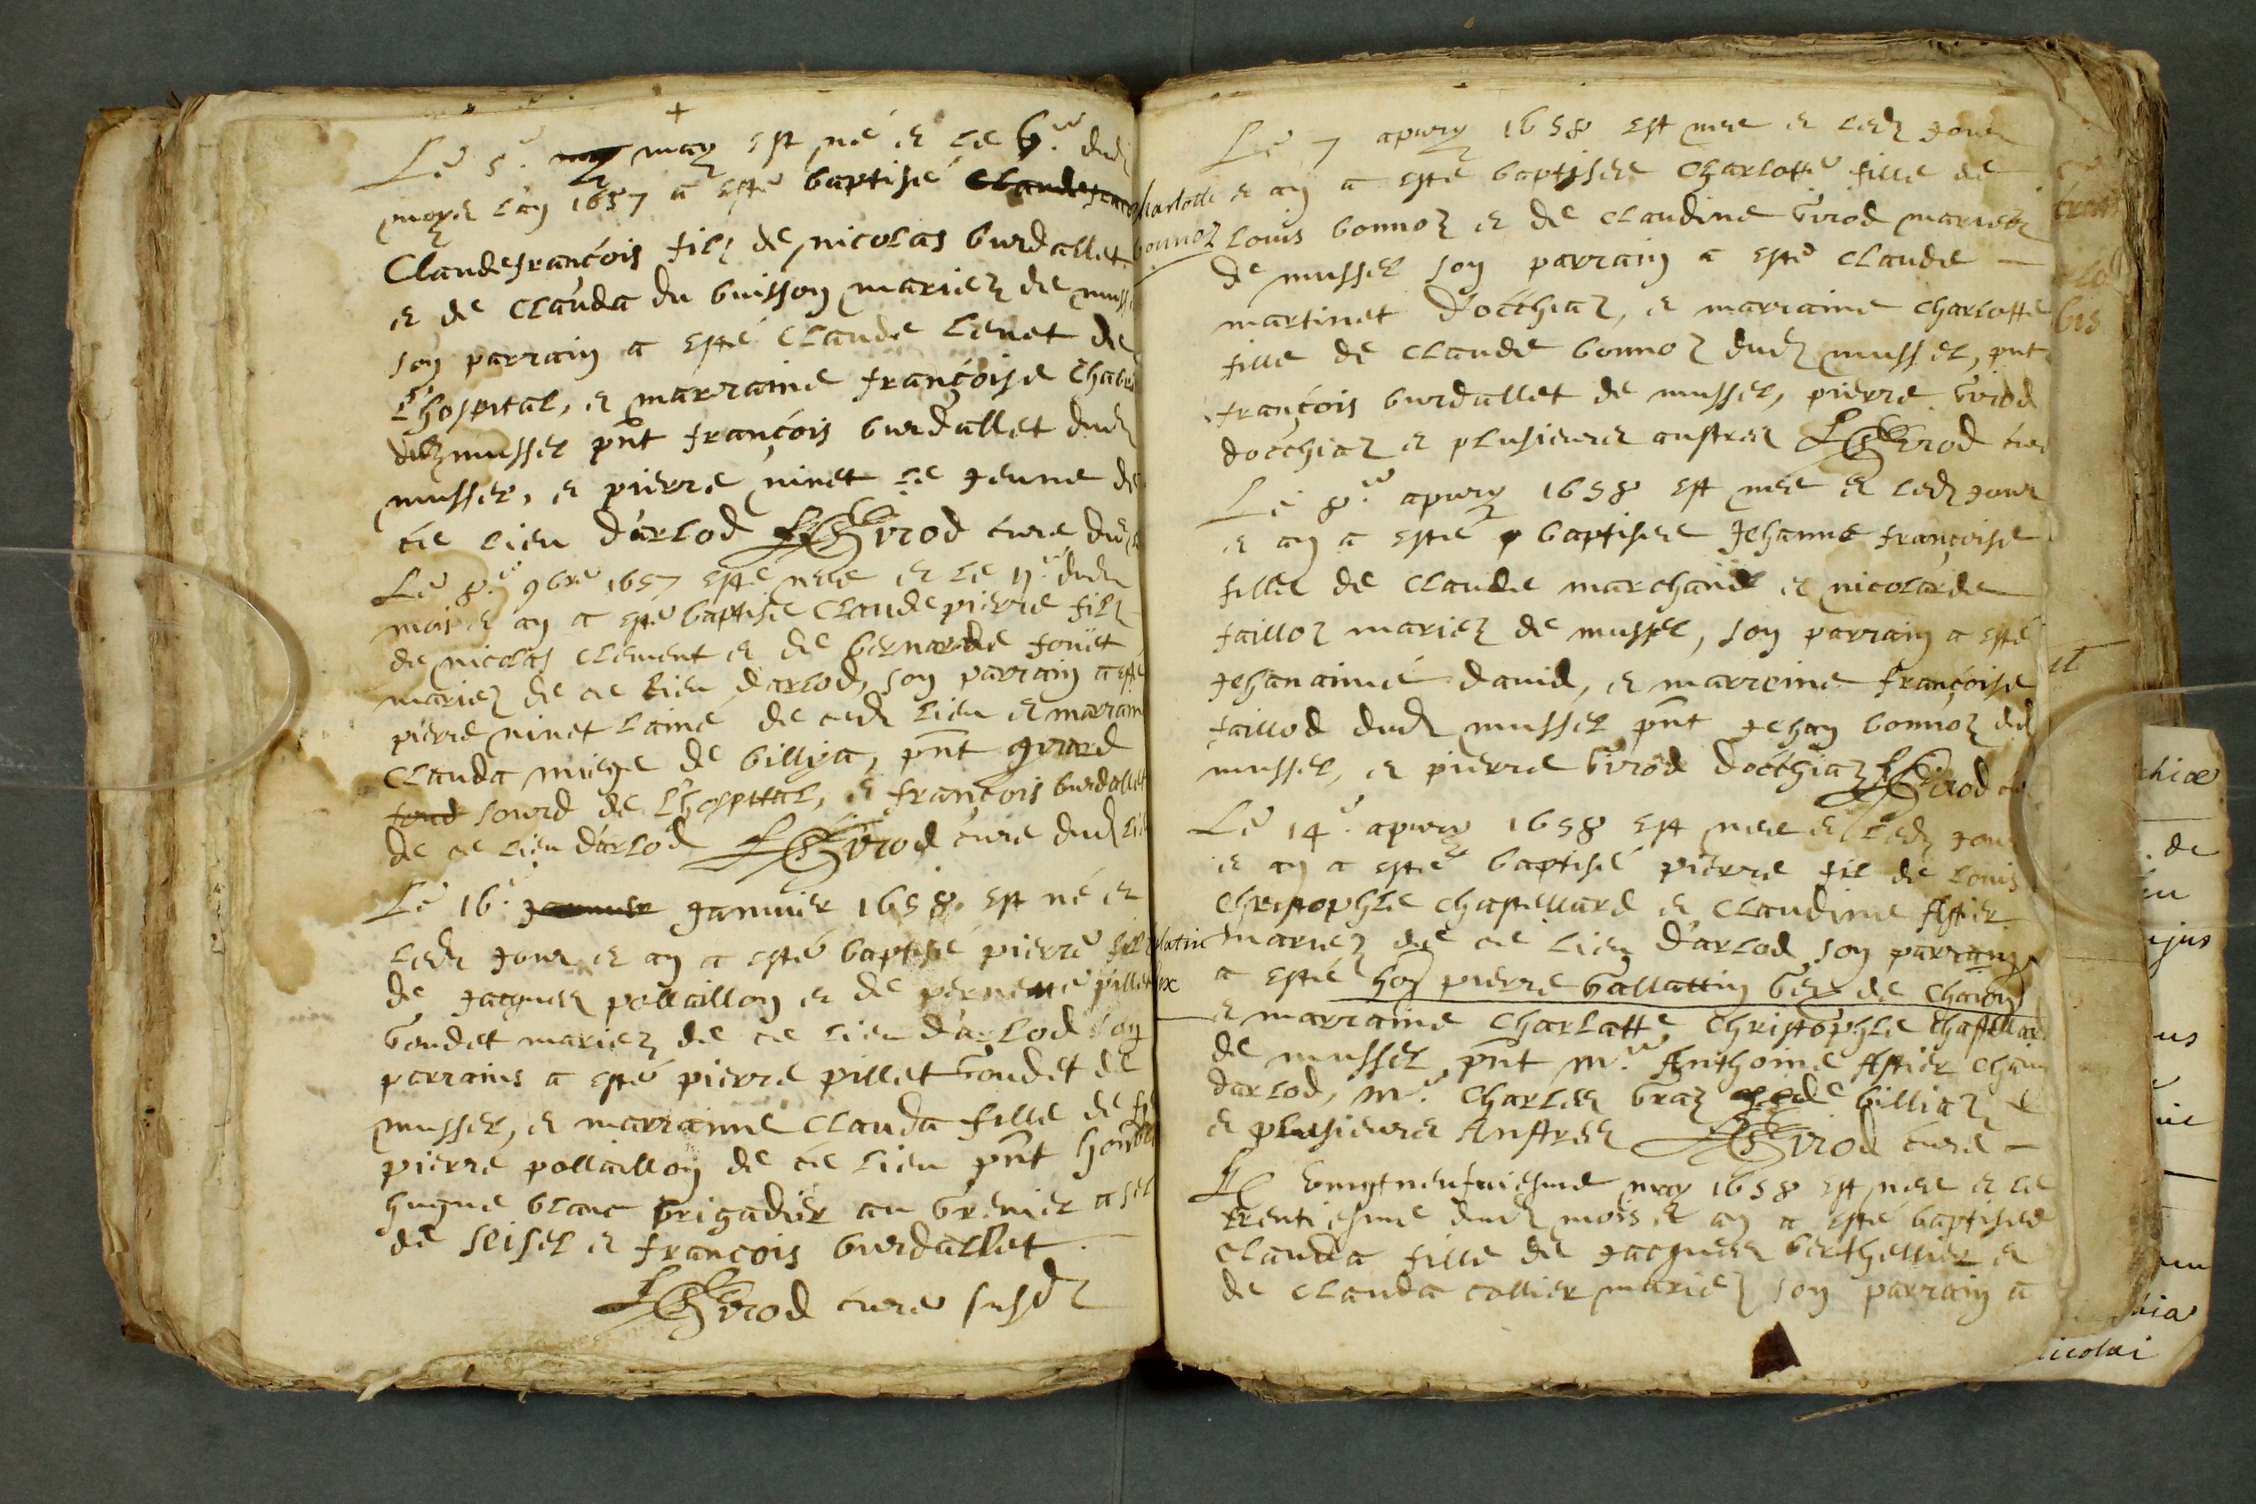 Le 5.e may est né et le 6.e dud
moys l'an 1657 a esté baptisé Claudefran
Claudefrançois filz de nicolas burdallet
et de clauda du buisson mariez de muss
son parrain a esté claude lenet de
l'hospital, et marraine françoise
dud mussel pnt françois burdallet dud
mussel, et pierre ninet le jeune de
ce lieu d'arlod Girod curé dud
Le 8.e 9bre 1657 esté née et le 11.e dud
mois et an a esté baptisé claude pierre filz
de nicolas clement et de bernarde jouët
mariez de ce lieu d'arlod, son parrain a esté
pierre ninet lainé de ced lieu et marrain
clauda miege de billya, pnt girard
sourd de l'hospital, et françois burdallet
de ce lieu d'arlod Girod curé dud lie
Le 16.e janvier 1658 est né et
led jour et an a esté baptisé pierre filz
de jacques pollaillon et de pernette pillet
goudet mariez de ce lieu d'arlod son
parrains a esté pierre pillet goudet de
mussel, et marrainne clauda fille de
pierre pollaillon de ce lieu pnt
hugue blanc brigadier au grenier a sel
de seisel et françois burdallet
Girod curé susd
Charlotte
bonnoz
Le 7 apvry 1658 est nee et led jour
et an a esté baptisee charlotte fille de
louis bonnoz et de claudine Girod mariez
de mussel son parrain a esté claude
martinet d'occhiaz, et marraine charlotte
fille de claude bonnoz dud mussel, pnt
françois burdallet de mussel, pierre Girod
docchiaz et plusieurs austres Girod curé
Le 8.e apvry 1658 est nee et led jour
et an a esté baptisee Jehanne françoise
fille de claude marchand et nicolarde
tailloz mariez de mussel, son parrain a esté
jehanaimé david, et marreine françoise
taillod dud mussel pnt jehan bonnoz dud
mussel, et pierre Girod docchiaz Girod
Le 14.e apvry 1658 est nee et led jour
et an a esté baptisé pierre fil de louis
christophle chastellard et claudine Astier
mariez de ce lieu d'arlod son parrain
a esté pierre Gallattin de
et marraine charlatte christophle chastellar
de mussel pnt M.e Anthoine Astier
darlod, M.e charles braz de billiaz
et plusieurs Austres Girod curé
Le vingtneufviesme may 1658 est nee et le
trentiesme dud mois et an a esté baptisee
clauda fille de jacques berthellier et
de clauda collier mariez son parrain a